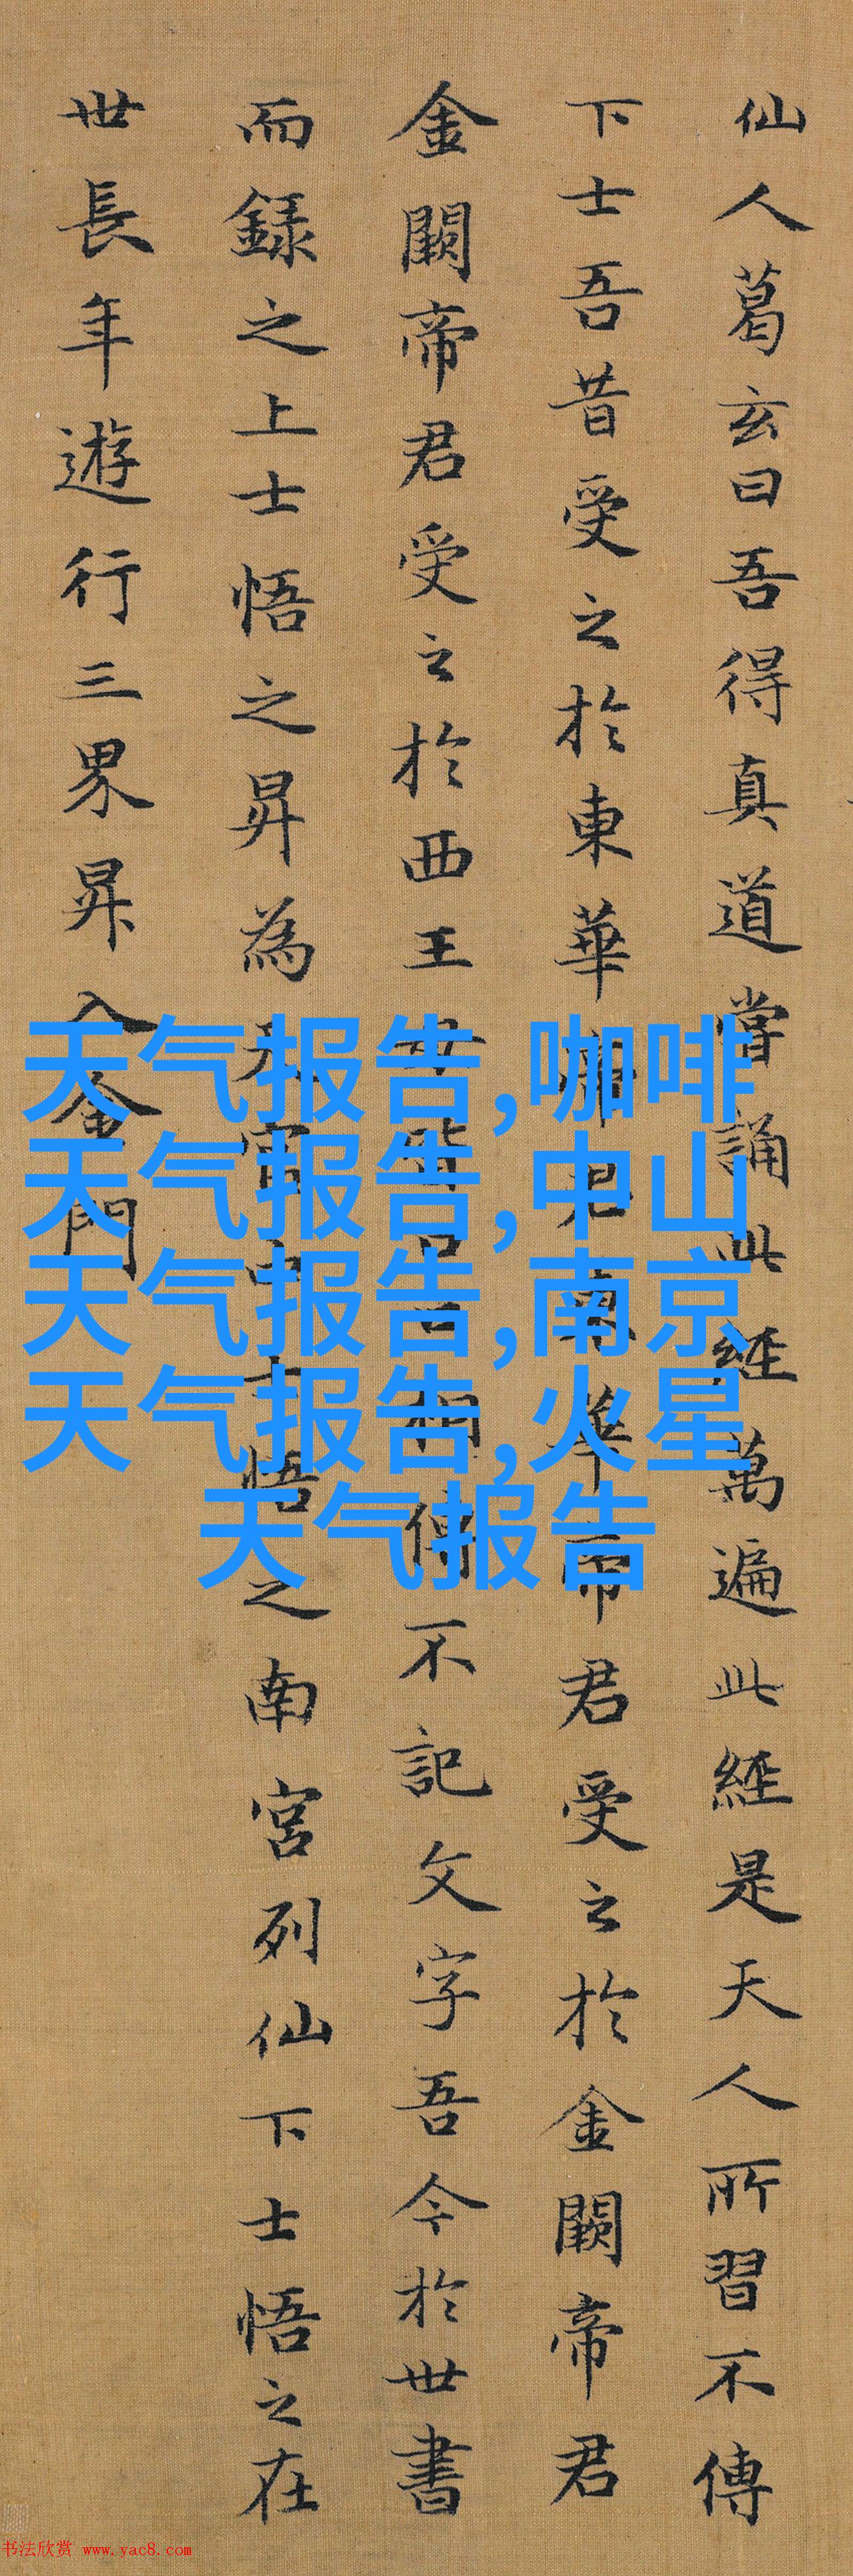 仙人葛玄曰吾得真道嘗誦此經萬遍此經是天人所習不傳
下士吾昔受之於東華帝君東華帝君受之於金闕帝君
金闕帝君受之於西王母皆口口相傳不記文字吾今於世書
而録之上士悟之昇為天官中士悟之南宮列仙下士悟之在
世長年遊行三界昇入金門
天气报告,咖啡
天气报告,中山
天气报告,南京
天气报告,火星
天气报告
书法欣赏 www.yac8.com